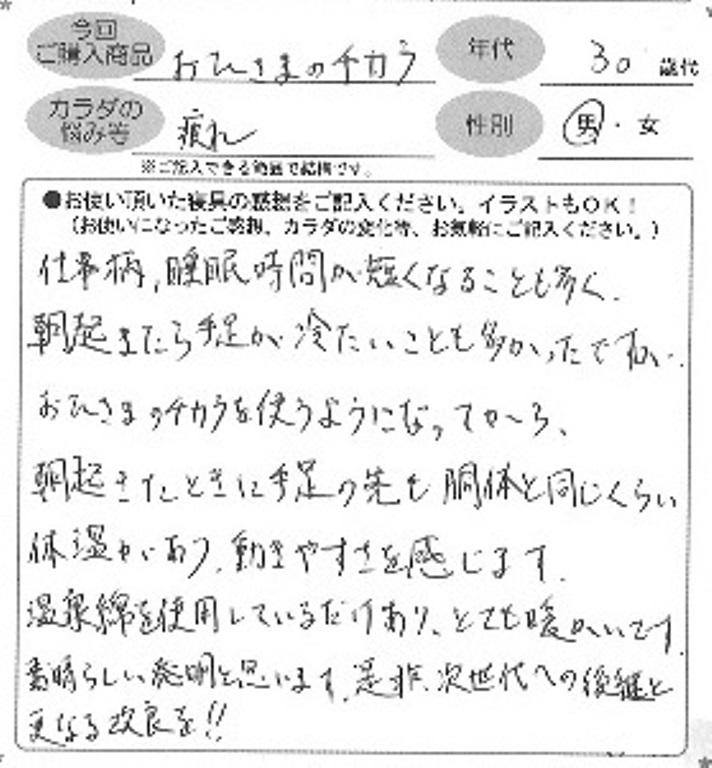 今回
ご購入商品 おひさまのチカラ 年代 30 歳代
カラダの
悩み等 疲れ 性別 男・女
※ご記入できる範囲で結構です。
●お使い頂いた寝具の感想をご記入ください。イラストもOK！
（お使いになったご感想、カラダの変化等、お気軽にご記入ください。）
仕事柄,睡眠時間が短くなることも多く、
朝起きたら手足が冷たいことも多かったですが、
おひさまのチカラを使うようになってから、
朝起きたときに手足の先も胴体と同じくらい
体温があり、動きやすさを感じます。
温泉綿を使用しているだけあり、とても暖かいです。
素晴らしい発明と思います。是非、次世代への後継と
更なる改良を!!